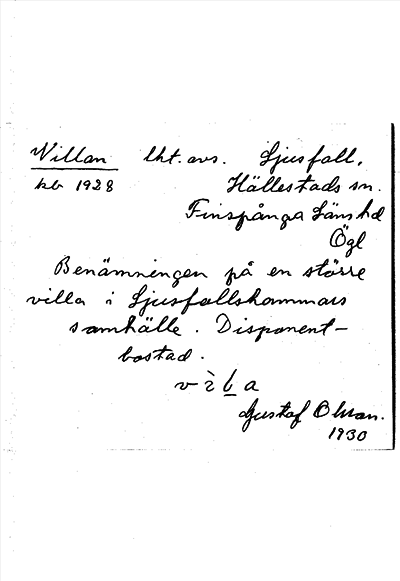 Villan lht. avs. Ljusfall,
kb 1928 Hällestads sn.
Finspånga Länshd
Ögl
Benämningen på en större
villa i Ljusfallshammars
samhälle. Disponent-
bostad.
Gustaf
1930